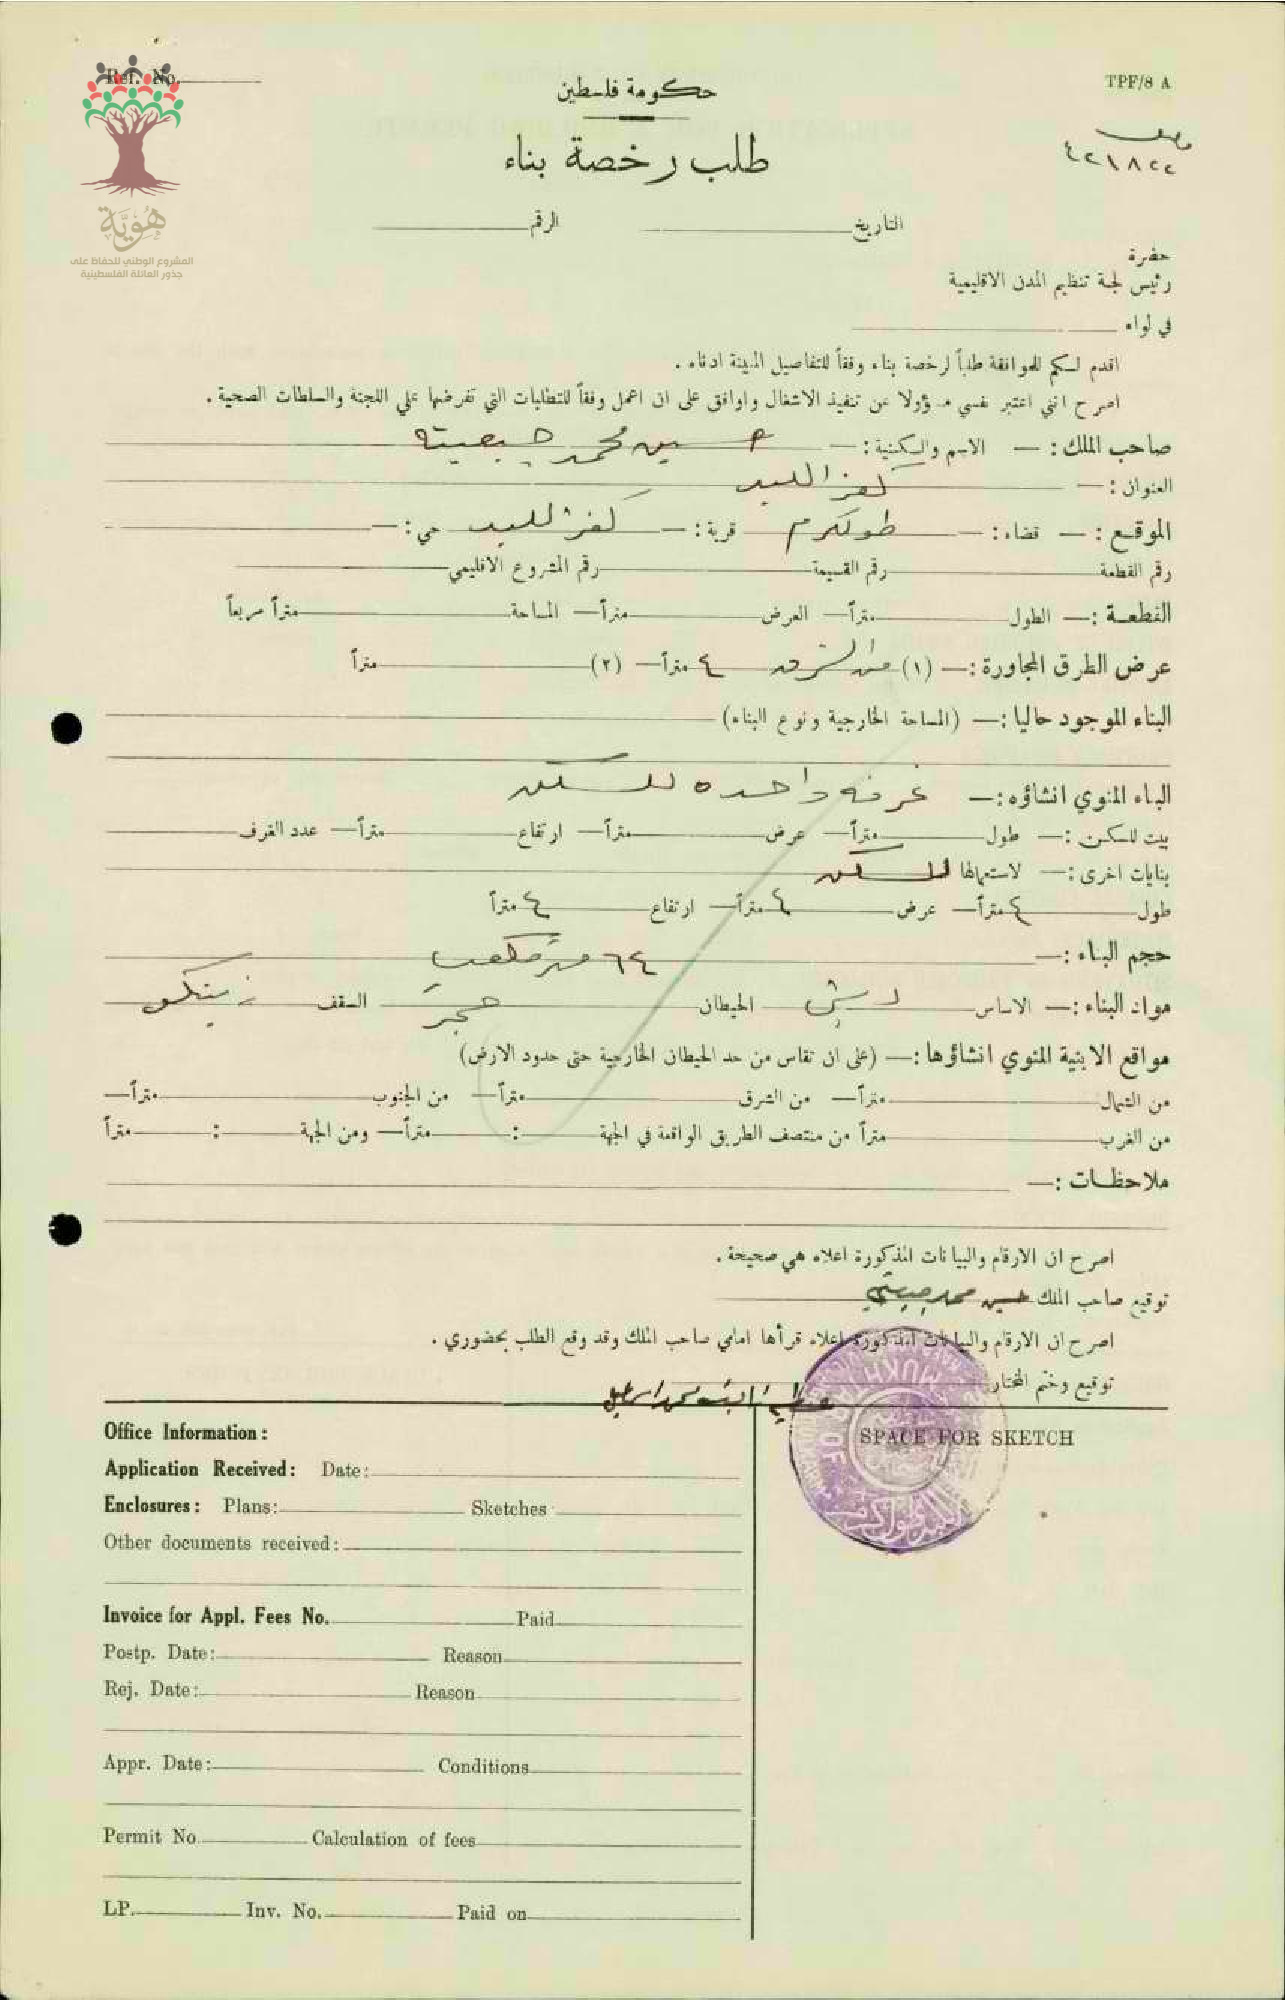 Ref. No.
TPF/8 A
حكومة فلسطين
طلب رخصة بناء
هُوِيَّة
المشروع الوطني للحفاظ على
جذور العائلة الفلسطينية
التاريخ الرقم
حضرة
رئيس لجنة تنظيم المدن الاقليمية
في لواء
اقدم لكم للموافقة طلباً لرخصة بناء وفقاً للتفاصيل المبينة ادناه .
اصرح انني اعتبر نفسي مسؤولا عن تنفيذ الاشغال واوافق على ان اعمل وفقاً للمتطلبات التي تفرضها علي اللجنة والسلطات الصحية .
صاحب الملك :— الاسم والكنية :— حسين محمد
العنوان :— كفر اللبد
الموقع :— قضاء :— طولكرم قرية :— كفر اللبد حي :—
رقم القطعة رقم القسيمة رقم المشروع الاقليمي
القطعة :— الطول متراً— العرض متراً— المساحة متراً مربعاً
عرض الطرق المجاورة :— (١) من الشرق ٤ متراً— (٢) متراً
البناء الموجود حاليا :— (المساحة الخارجية ونوع البناء)
البناء المنوي انشاؤه :— غرفه واحده للسكن
بيت للسكن :— طول متراً— عرض متراً— ارتفاع متراً— عدد الغرف
بنايات اخرى :— لاستعمالها للسكن
طول ٤ متراً— عرض ٤ متراً— ارتفاع ٤ متراً
حجم البناء :— ٦٤ متر مكعب
مواد البناء :— الاساس دبش الحيطان حجر السقف زينكو
مواقع الابنية المنوي انشاؤها :— (على ان تقاس من حد الحيطان الخارجية حتى حدود الارض)
من الشمال متراً— من الشرق متراً— من الجنوب متراً—
من الغرب متراً من منتصف الطريق الواقعة في الجهة : متراً— ومن الجهة : متراً
ملاحظات :—
اصرح ان الارقام والبيانات المذكورة اعلاه هي صحيحة .
توقيع صاحب الملك حسين محمد
اصرح ان الارقام والبيانات المذكورة اعلاه قرأها امامي صاحب الملك وقد وقع الطلب بحضوري .
توقيع وختم المختار
MUKHTAR OF
Office Information :
Application Received : Date :
Enclosures : Plans: Sketches
Other documents received :
Invoice for Appl. Fees No. Paid
Postp. Date: Reason
Rej. Date: Reason
Appr. Date: Conditions
Permit No. Calculation of fees
LP. Inv. No. Paid on
SPACE FOR SKETCH